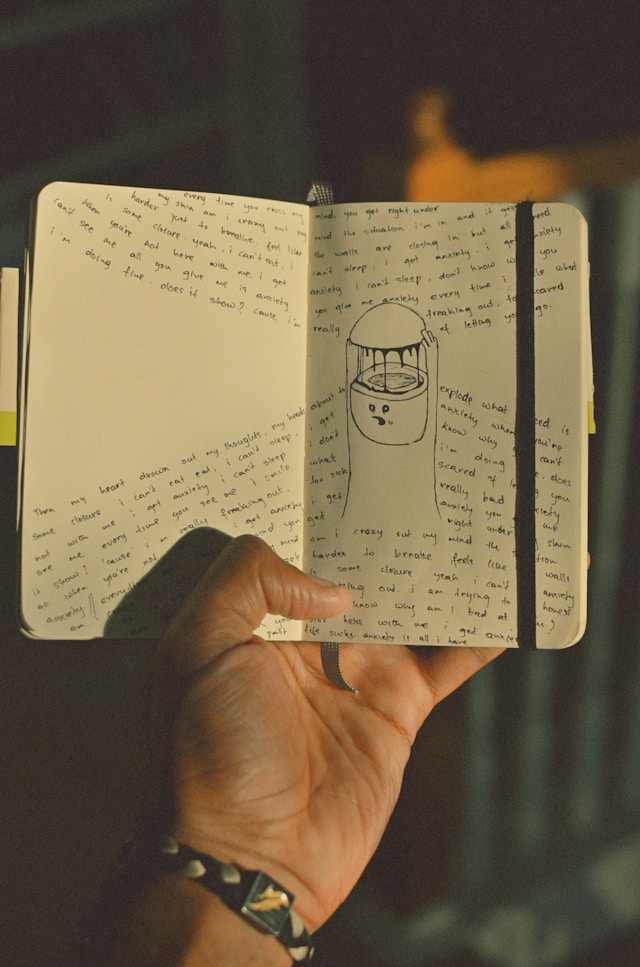 is my every time you cross my
harder skin am i crazy out my
some just to breathe. feel like
can't closure. yeah, i can't eat, i
see when you're not here with me, i get
i'm me all you give me is anxiety
doing fine. does it show? cause i'm
Then my heart drown out my thoughts, my heads
some closure i can't eat eat, i can't sleep,
not with me i get anxiety i can't sleep
see me every time you see me i smile
it show? 'cause i'm really freaking out,
as when you're not i get anxiety
anxiety everyth mind
an
mind, you get right under
mind the situation i'm in and it
the walls are closing in but all need
can't sleep, i get anxiety, i get anxiety
anxiety i can't sleep, don't know you
you give me anxiety every time i what
really freaking out, scared
of letting go.
about to explode what need is
i get anxiety when you're
i don't know why can't
what i'm doing does
for sick scared of you
i get really bad anxiety
get right under my
am i crazy out my mind the skin
harder to breathe feels like
is some closure yeah i can't walls
out. i am trying to anxiety
know why am i bad at
here with me i get
past life sucks anxiety is all i have